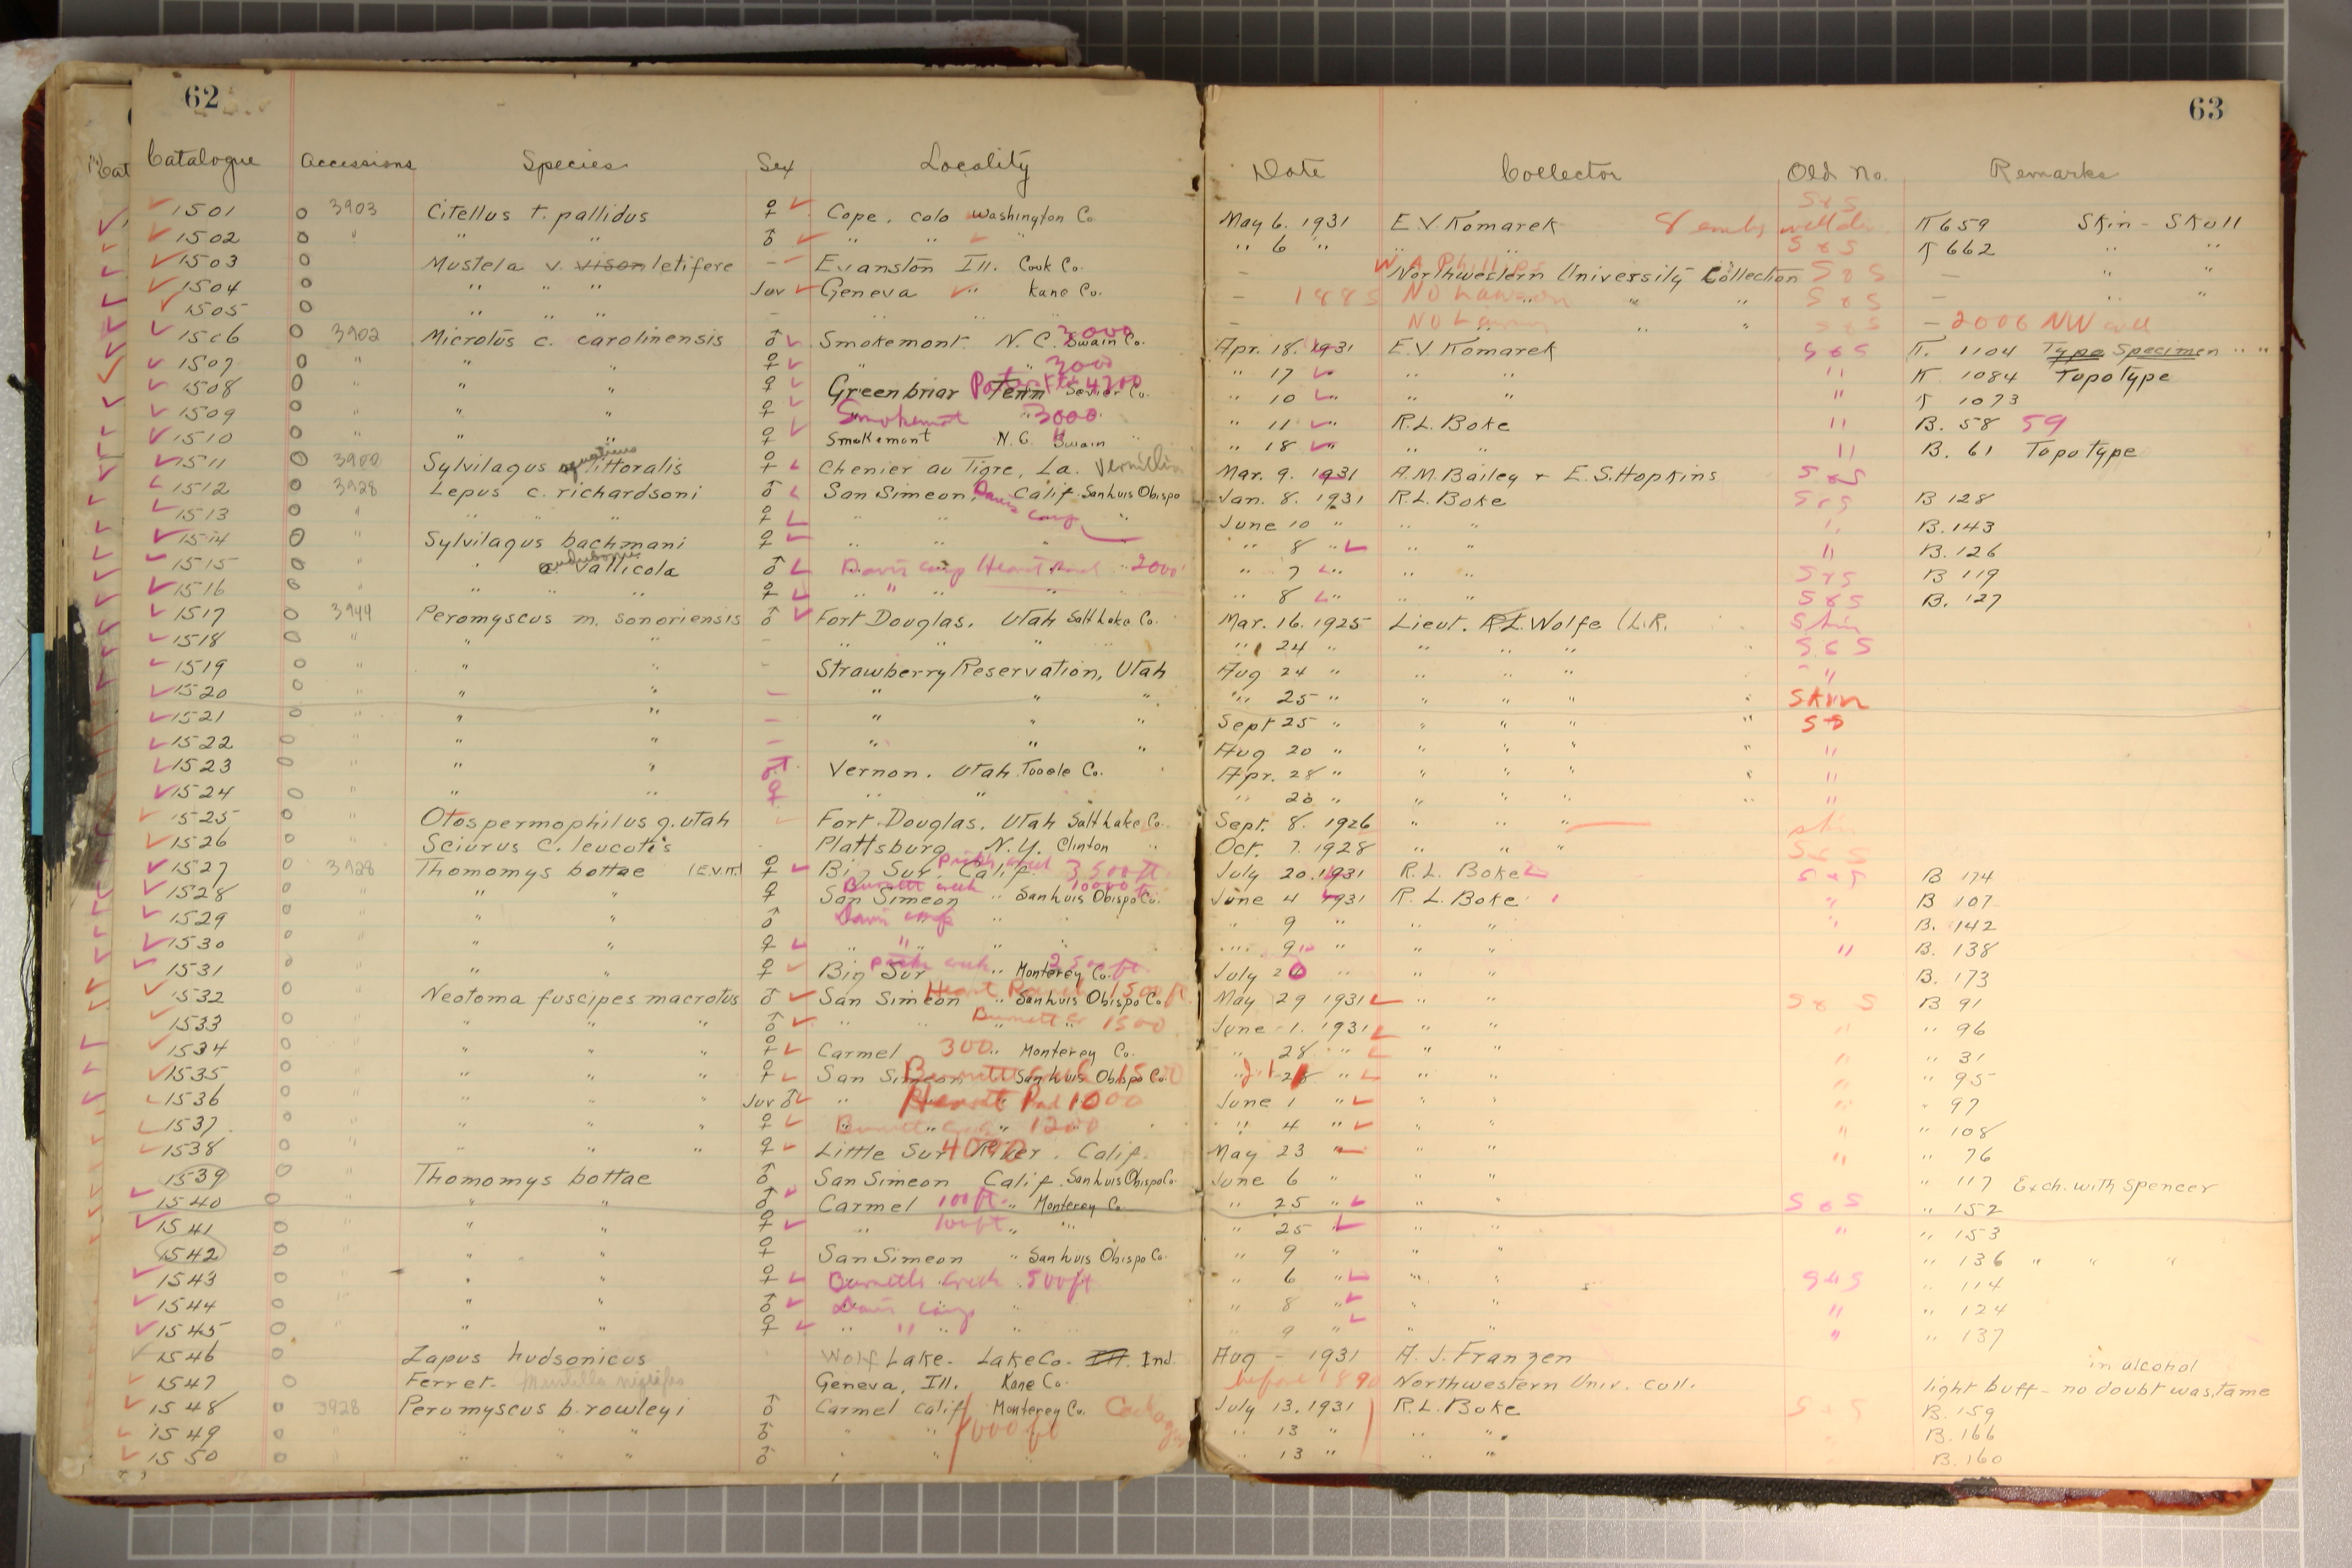 62
63
Catalogue Accessions Species Sex Locality Date Collector Old No. Remarks
1501 O 3903 Citellus t. pallidus ♀ Cope. Colo Washington Co. May 6. 1931 E.V. Komarek 8 embs S&S K659 Skin - Skull
1502 O " " " ♂ " " " " 6 " " " S&S K662 " "
1503 O Mustela v. vison letifere - Evanston Ill. Cook Co. - W A Phillips Northwestern University Collection S&S - " "
1504 O " " " Juv Geneva " Kane Co. - 1885 " " S&S - " "
1505 O " " " - " " " - " " S&S - 2006 NW coll
1506 O 3902 Microtus c. carolinensis ♂ Smokemont N.C. 3000 Swain Co. Apr. 18. 1931 E.V. Komarek S&S K. 1104 Type Specimen " "
1507 O " " " ♀ " " 3000 " 17 " " " K 1084 Topotype
1508 O " " " ♀ Greenbriar Tenn Sevier Co. 4700 " 10 " " " K 1073
1509 O " " " ♀ Smokemont 3000 " 11 R.L. Boke " B. 58 59
1510 O " " " ♀ Smokemont N.C. Swain " " 18 " " " B. 61 Topotype
1511 O 3900 Sylvilagus aquaticus littoralis ♀ Chenier au Tigre, La. Vermilion Mar. 9. 1931 A.M. Bailey + E.S. Hopkins S&S
1512 O 3928 Lepus c. richardsoni ♂ San Simeon, Davis Camp Calif. San Luis Obispo Jan. 8. 1931 R.L. Boke S&S B 128
1513 O " " " " ♀ " " " June 10 " " " " B. 143
1514 O Sylvilagus bachmani ♀ " " " " 8 " " " " B. 126
1515 O " " audubonii vallicola ♂ Davis camp Hearst Ranch 2000' " 7 " " " S&S B 119
1516 O " " " " ♀ " " " " 8 " " " S&S B. 127
1517 O 3944 Peromyscus m. sonoriensis ♂ Fort Douglas. Utah Salt Lake Co. Mar. 16. 1925 Lieut. R.L. Wolfe (L.R. Skin
1518 O " " " - " " " " 24 " " " " S&S
1519 O " " " - Strawberry Reservation, Utah Aug 24 " " " " "
1520 O " " " - " " " " 25 " " " " Skin
1521 O " " " - " " " Sept 25 " " " " SS
1522 O " " " - " " " Aug 20 " " " " "
1523 O " " " Vernon. Utah. Tooele Co. Apr. 28 " " " " "
1524 O " " " ♀ " " " 28 " " " " "
1525 O " Otospermophilus g. utah Fort Douglas. Utah Salt Lake Co. Sept. 8. 1926 " " " skin
1526 O " Sciurus c. leucotis Plattsburg N.Y. Clinton " Oct. 7. 1928 " " " S&S
1527 O 3928 Thomomys bottae (E.V.K.) ♀ Big Sur, Calif. 3,500 ft July 20. 1931 R.L. Boke S&S B 174
1528 O " " " ♀ Burnett creek San Simeon " San Luis Obispo Co. June 4 1931 R.L. Boke " B 107
1529 O " " " ♂ Davis camp " 9 " " " " B. 142
1530 O " " " ♀ " " " " " 9 " " " " B. 138
1531 O " " " ♀ Big Sur " Monterey Co. July 20 " " " B. 173
1532 O " Neotoma fuscipes macrotus ♂ San Simeon Hearst Ranch 1500 ft " San Luis Obispo Co. May 29 1931 " " S&S B 91
1533 O " " " " ♂ " " Burnett Cr 1500 June 1. 1931 " " " " 96
1534 O " " " " ♀ Carmel 300 " Monterey Co. " 28 " " " " " 31
1535 O " " " " ♀ San Simeon Burnett Creek 1500 San Luis Obispo Co. " 28 " " " " " 95
1536 O " " " " Juv ♂ " Hearst Rand 1000 June 1 " " " " " 97
1537 O " " " " ♀ Burnett Creek 1200 " 4 " " " " " 108
1538 O " " " " ♀ Little Sur River. Calif. May 23 " " " " " 76
1539 O " Thomomys bottae ♂ San Simeon Calif. San Luis Obispo Co. June 6 " " " " 117 Exch. with Spencer
1540 O " " ♂ Carmel 100 ft. " Monterey Co. " 25 " " " S&S " 152
1541 O " " " ♀ " 100 ft " " " 25 " " " " " 153
1542 O " " " ♀ San Simeon " San Luis Obispo Co. " 9 " " " " 136 " " "
1543 O " " ♀ Burnetts Creek 500 ft " 6 " " " S&S " 114
1544 O " " " ♂ Davis Camp " " 8 " " " " " 124
1545 O " " ♀ " " " " " 9 " " " " " 137
1546 O Zapus hudsonicus Wolf Lake - Lake Co. - Ill. Ind. Aug - 1931 A. J. Franzen in alcohol
1547 O Ferret - Mustella nigripes Geneva, Ill. Kane Co. before 1890 Northwestern Univ. coll. light buff - no doubt was tame
1548 O 3928 Peromyscus b. rowleyi ♂ Carmel Calif Monterey Co. July 13. 1931 R.L. Boke S&S B. 159
1549 O " " " ♂ " " 1000 ft " 13 " " " B. 166
1550 O " " " ♂ " " " 13 " " " B. 160